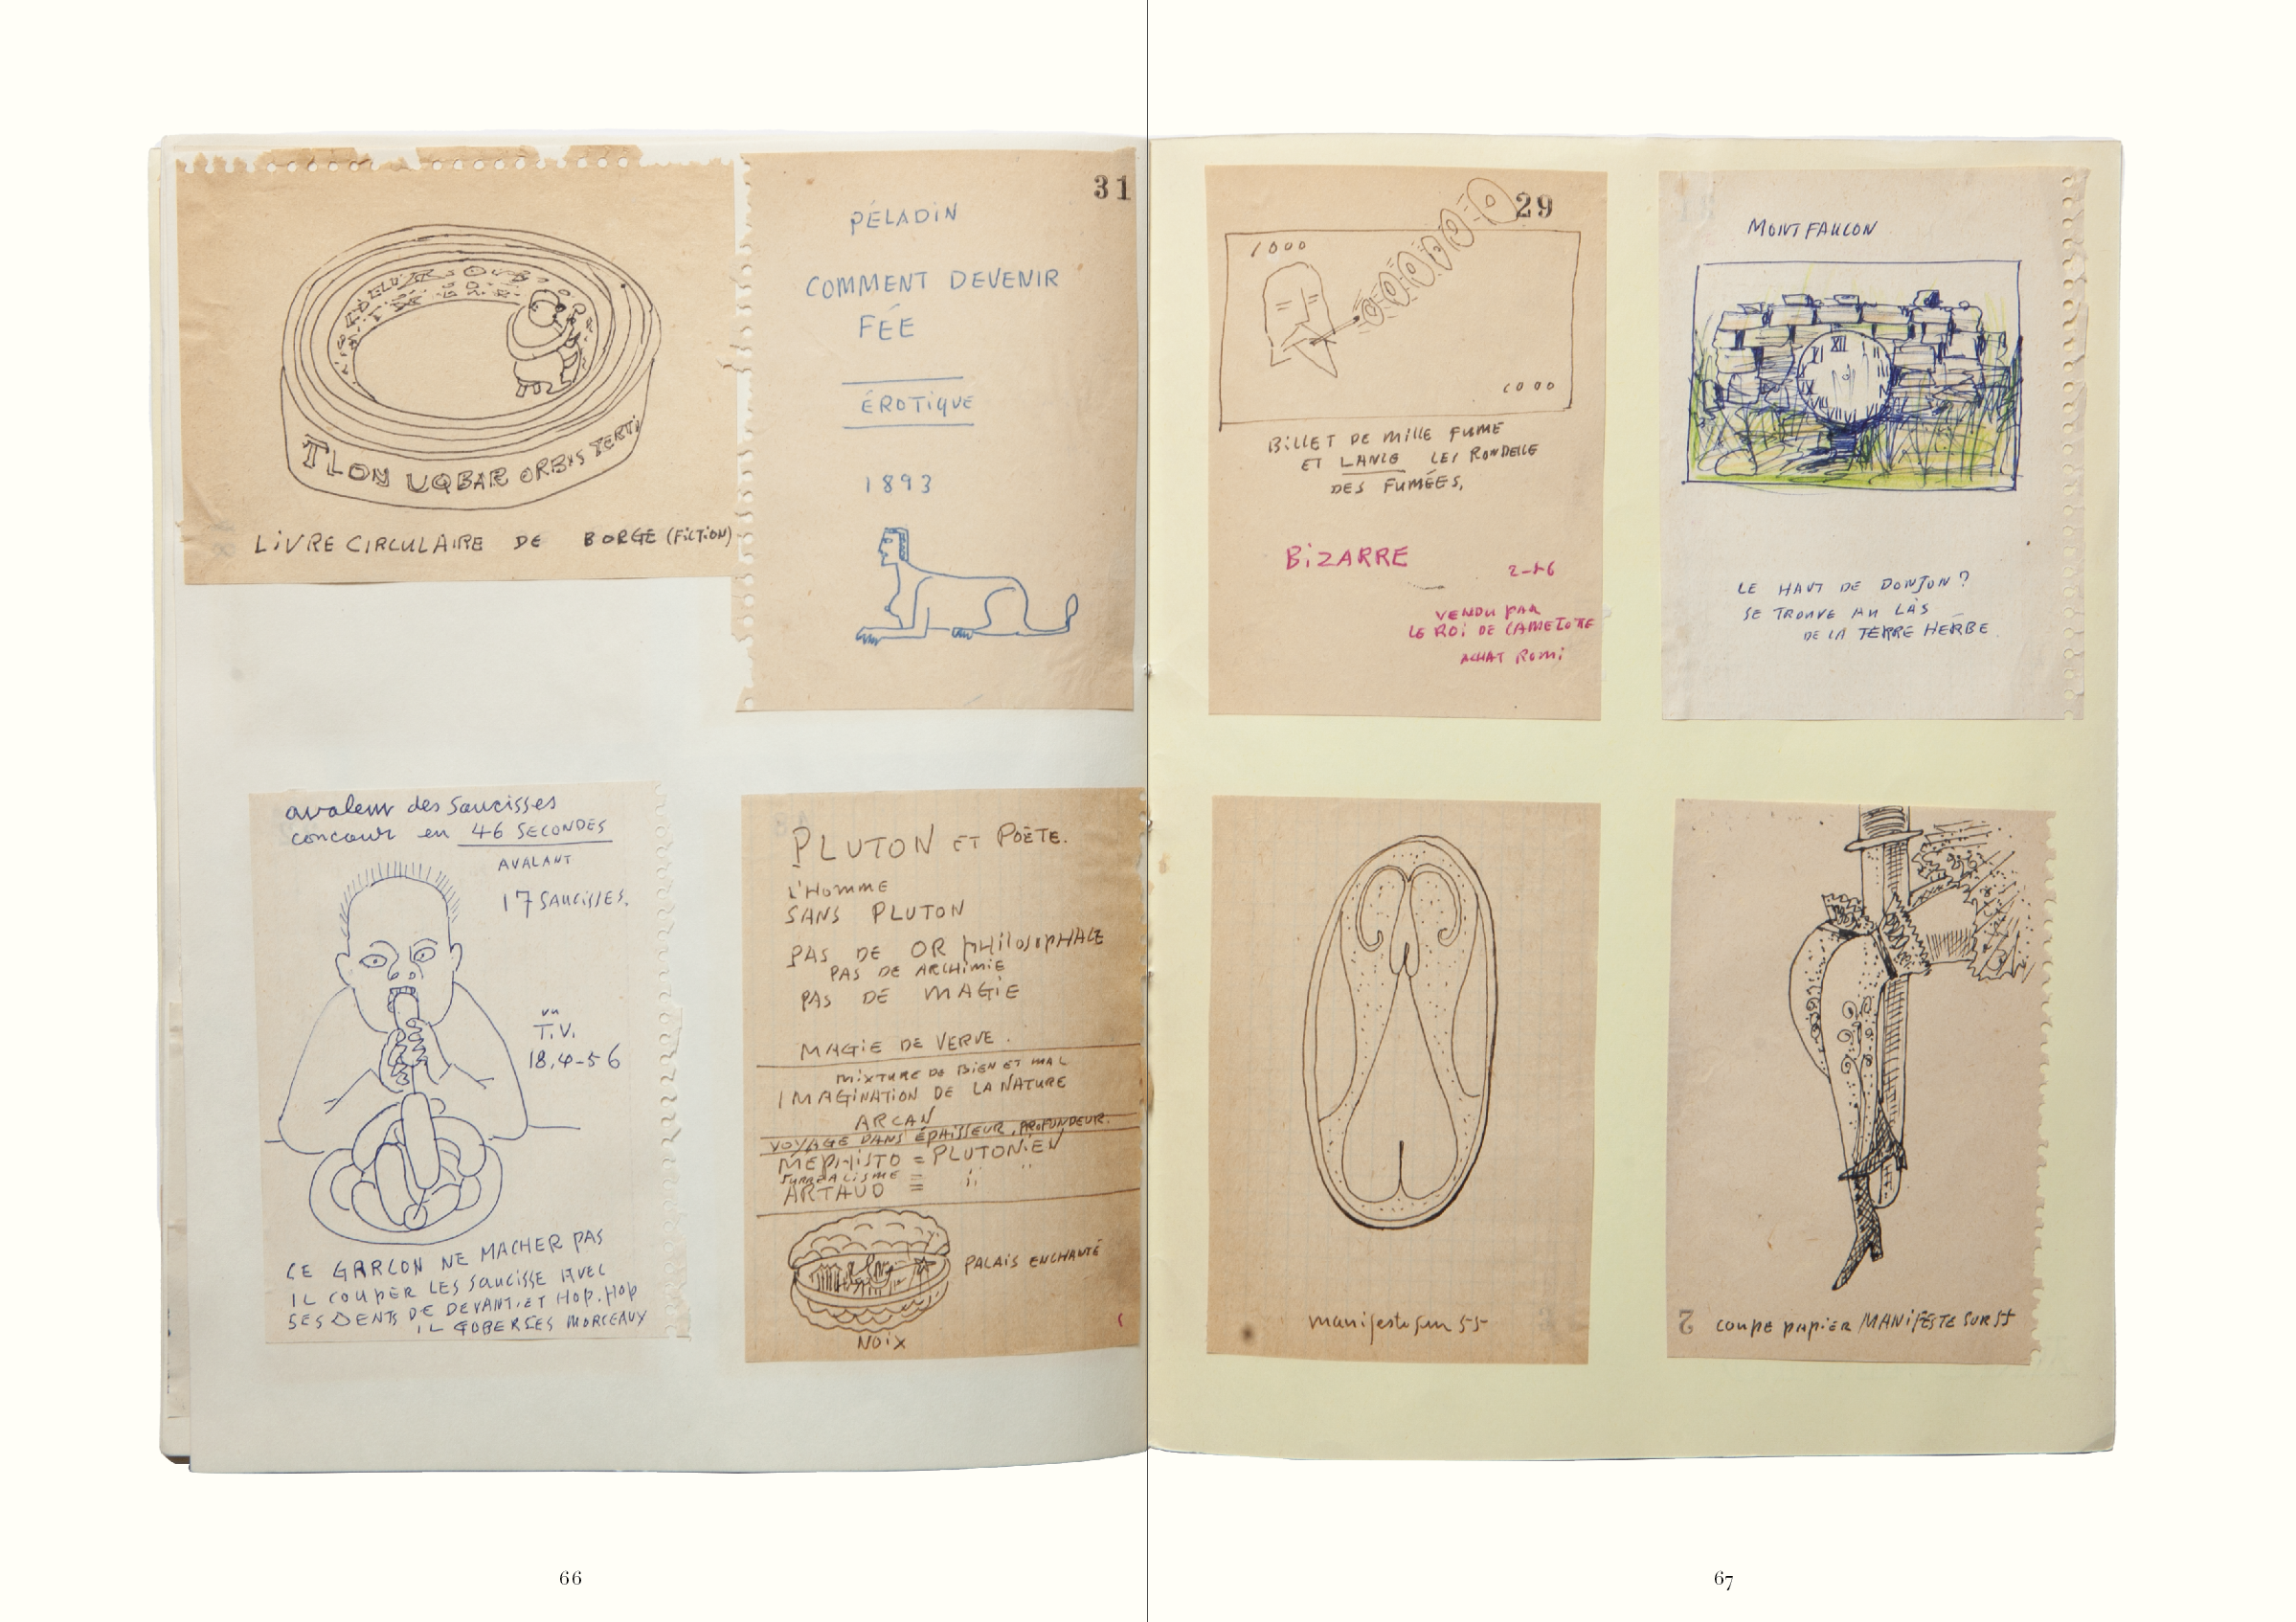 TLON UQBAR ORBIS TERTI
LIVRE CIRCULAIRE DE BORGE (FICTION)
31
PÉLADIN
COMMENT DEVENIR
FÉE
ÉROTIQUE
1893
avaleur des saucisses
concour en 46 SECONDES
AVALANT
17 SAUCISSES.
vu
T.V.
18.4-56
CE GARCON NE MACHER PAS
IL COUPER LES SAUCISSE AVEC
SES DENTS DE DEVANT, ET HOP. HOP
IL GOBER SES MORCEAUX
PLUTON ET POÈTE.
L'HOMME
SANS PLUTON
PAS DE OR PHILOSOPHALE
PAS DE ARCHIMIE
PAS DE MAGIE
MAGIE DE VERVE.
MIXTURE DE BIEN ET MAL
IMAGINATION DE LA NATURE
ARCAN
VOYAGE DANS ÉPAISSEUR, PROFONDEUR.
MEPHISTO = PLUTONIEN
SURREALISME = "
ARTAUD =
PALAIS ENCHANTÉ
NOIX
66
29
1000
1000
BILLET DE MILLE FUME
ET LANCE LES RONDELLE
DES FUMÉES,
BIZARRE
VENDU PAR
LE ROI DE CAMELOTE
ACHAT ROMI
MONTFAUCON
XII
XI
IX
LE HAUT DE DONJON?
SE TROUVE AU LAS
DE LA TERRE HERBE
manifeste sur 55
2 COUPE PAPIER MANIFESTE SUR 55
67